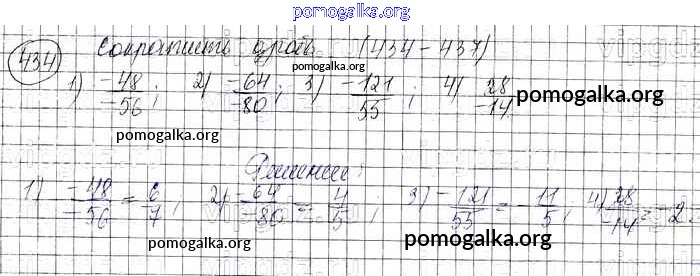 pomogalka.org
434 Сократить дробь (434-437)
pomogalka.org
1) -48/-56; 2) -64/-80; 3) -121/55; 4) 28/-14
pomogalka.org
pomogalka.org
Решение:
1) -48/-56 = 6/7; 2) -64/-80 = 4/5; 3) -121/55 = -11/5; 4) 28/-14 = -2.
pomogalka.org
pomogalka.org